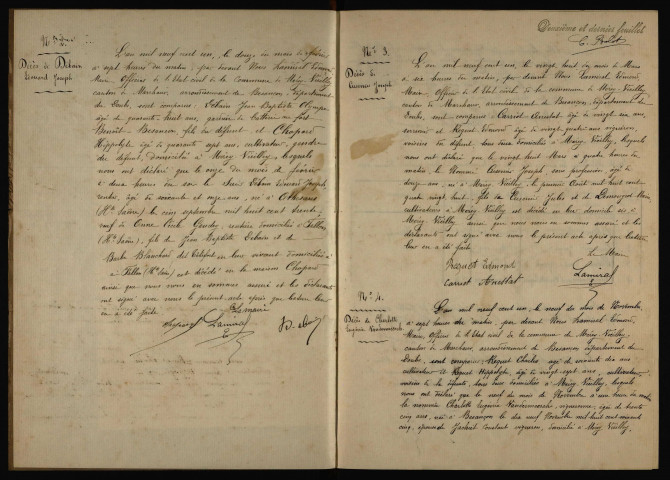 Nº 2.
Décès de Debain
Edmond Joseph
L'an mil neuf cent un, le douze du mois de février
à sept heures du matin, par devant Nous Lamiral Edmond
Maire Officier de l'Etat civil de la Commune de Mérey Vieilley
canton de Marchaux, arrondissement de Besançon, Département
du Doubs, sont comparus Debain Jean Baptiste Olympe
âgé de quarante huit ans, gardien de batterie au fort
Benoit, Besançon, fils du défunt et Chopard
Hippolyte âgé de quarante sept ans, cultivateur, gendre
du défunt, domicilié à Mérey Vieilley, lesquels
nous ont déclaré que le onze du mois de février
à deux heures du soir le Sieur Debain Edmond Joseph,
rentier, âgé de soixante et onze ans, né à
(Hte Saône) le cinq septembre mil huit cent trente
neuf de domicilié à
(Hte Saône), fils de Jean Baptiste Debain et de
Blanchard en leur vivant domiciliés
à (Hte Saône) est décédé en la maison Chopard
ainsi que nous nous en sommes assuré et les déclarants
ont signé avec nous le présent acte après que lecture leur
en a été faite.
Le Maire
Lamiral
Deuxième et dernier feuillet
Nº 3.
Décès de
Cuenin Joseph
L'an mil neuf cent un, le vingt huit du mois de Mars
à six heures du matin, par devant Nous Lamiral Edmond
Maire, Officier de l'Etat civil de la commune de Mérey Vieilley
canton de Marchaux, arrondissement de Besançon, département du
Doubs, sont comparus Carriot Aristat âgé de vingt un ans,
et Reguet Edmond âgé de vingt quatre ans vigneron,
voisins du défunt, tous deux domiciliés à Mérey Vieilley, lesquels
nous ont déclaré que le vingt huit Mars à quatre heures du
matin, le Nommé Cuenin Joseph sans profession, âgé de
douze ans, né à Mérey Vieilley, le premier Août mil huit cent
quatre vingt huit, fils de Cuenin Jules et de
cultivateurs à Mérey Vieilley est décédé en leur domicile sis à
Mérey Vieilley ainsi que nous nous en sommes assuré et les
déclarants ont signé avec nous le présent acte après que lecture
leur en a été faite
le Maire
Reguet Edmond
Lamiral
Carriot Aristat
Nº 4.
Décès de Charlotte
Eugénie
L'an mil neuf cent un, le neuf du mois de Novembre
à sept heures du matin, par devant Nous Lamiral Edmond,
Maire, Officier de l'Etat civil de la commune de Mérey Vieilley,
canton de Marchaux, arrondissement de Besançon département du
Doubs, sont comparus Reguet Charles âgé de soixante dix ans
cultivateur et Reguet Hippolyte, âgé de vingt sept ans, cultivateur
voisins de la défunte, tous deux domiciliés à Mérey Vieilley, lesquels
nous ont déclaré que le neuf du mois de Novembre à une heure du matin
la nommée Charlotte Eugénie vigneronne, âgée de trente
cinq ans, née à Besançon le dix neuf Novembre mil huit cent soixante
cinq, épouse de Jacquet Constant vigneron, domicilié à Mérey Vieilley.